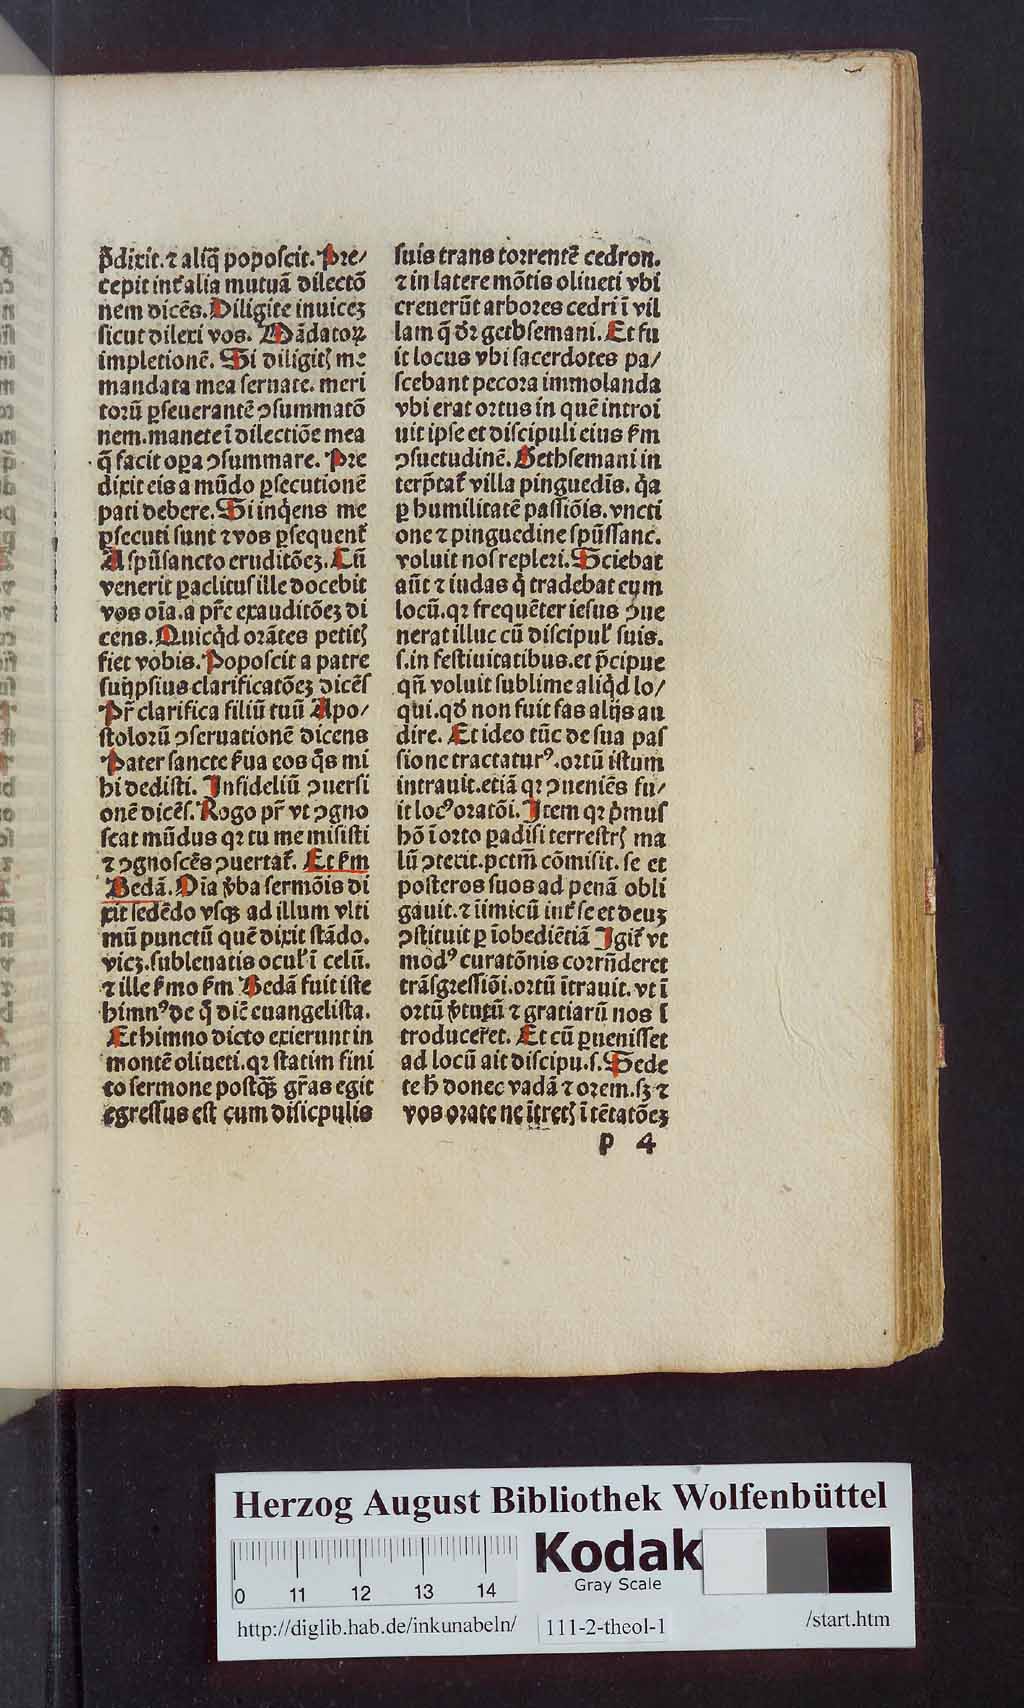 p̄dixit. ⁊ aliq̄ poposcit. Pre/
cepit int̉ alia mutuā dilectō
nem dicēs. Diligite inuiceꝫ
sicut dilexi vos. Mādatoꝝ
impletionē. Si diligitꝭ me
mandata mea seruate. meri
torū ꝑseuerantē ↄsummatō
nem. manete ī dilectiōe mea
q̄ facit oꝑa ↄsummare. Pre
dixit eis a mūdo ꝑsecutionē
pati debere. Si inq̇ens me
ꝑsecuti sunt ⁊ vos ꝑsequent̉
A spūsancto eruditōeꝫ. Cū
venerit ꝑaclitus ille docebit
vos oīa. a pr̄e exauditōeꝫ di
cens. Quicq̇d orātes petitꝭ
fiet vobis. Poposcit a patre
suijpsius clarificatōeꝫ dicēs
Pr̄ clarifica filiū tuū Apo/
stolorū ↄseruationē dicens
Pater sancte s̉ua eos q̄s mi
hi dedisti. Infideliū ↄuersi
onē dicēs. Rogo pr̄ vt ↄgno
scat mūdus qꝛ tu me misisti
⁊ ↄgnoscēs ↄuertat̉. Et s̉m
Bedā. Oīa v̉ba sermōis di
xit sedēdo vsqꝫ ad illum vlti
mū punctū quē dixit stādo.
vicꝫ. subleuatis ocul̉ ī celū.
⁊ ille s̉mo s̉m Bedā fuit iste
himnꝰ de q̊ dic̄ euangelista.
Et himno dicto exierunt in
montē oliueti. qꝛ statim fini
to sermone postq̄ꝫ gr̄as egit
egressus est cum disicpulis
suis trans torrentē cedron.
⁊ in latere mōtis oliueti vbi
creuerūt arbores cedri ī vil
lam q̄ dr̄ gethsemani. Et fu
it locus vbi sacerdotes pa/
scebant pecora immolanda
vbi erat ortus in quē introi
uit ipse et discipuli eius s̉m
ↄsuetudinē. Gethsemani in
terp̄tat̉ villa pinguedīs. q̇a
ꝑ humilitatē passiōis. vncti
one ⁊ pinguedine spūssanc.
voluit nos repleri. Sciebat
aūt ⁊ iudas q̇ tradebat eum
locū. qꝛ frequēter iesus ↄue
nerat illuc cū discipul̉ suis.
s. in festiuitatibus. et p̄cipue
qn̄ voluit sublime aliq̇d lo/
qui. qd̄ non fuit fas alijs au
dire. Et ideo tūc de sua pas
sione tractaturꝰ. ortū istum
intrauit. etiā qꝛ ↄueniēs fu/
it locꝰ oratōi. Item qꝛ ṗmus
hō ī orto paradisi terrestrꝭ ma
lū ↄtexit. pctm̄ cōmisit. se et
posteros suos ad penā obli
gauit. ⁊ iīmicū int̉ se et deuꝫ
ↄstituit ꝑ īobediētiā Igit̉ vt
modꝰ curatōnis corrn̄deret
trāsgressiōi. ortū ītrauit. vt ī
ortū v̉tutū ⁊ gratiarū nos ī
troduceret. Et cū ꝑuenisset
ad locū ait discipu. s. Sede
te h̄ donec vadā ⁊ orem. sꝫ ⁊
vos orate ne ītretꝭ ī tētatōeꝫ
p 4
Herzog August Bibliothek Wolfenbüttel
Kodak
Gray Scale
0 11 12 13 14
http://diglib.hab.de/inkunabeln/
111-2-theol-1
/start.htm